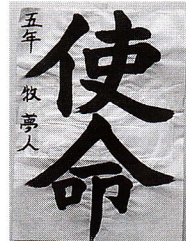 使命
五年 牧 夢人